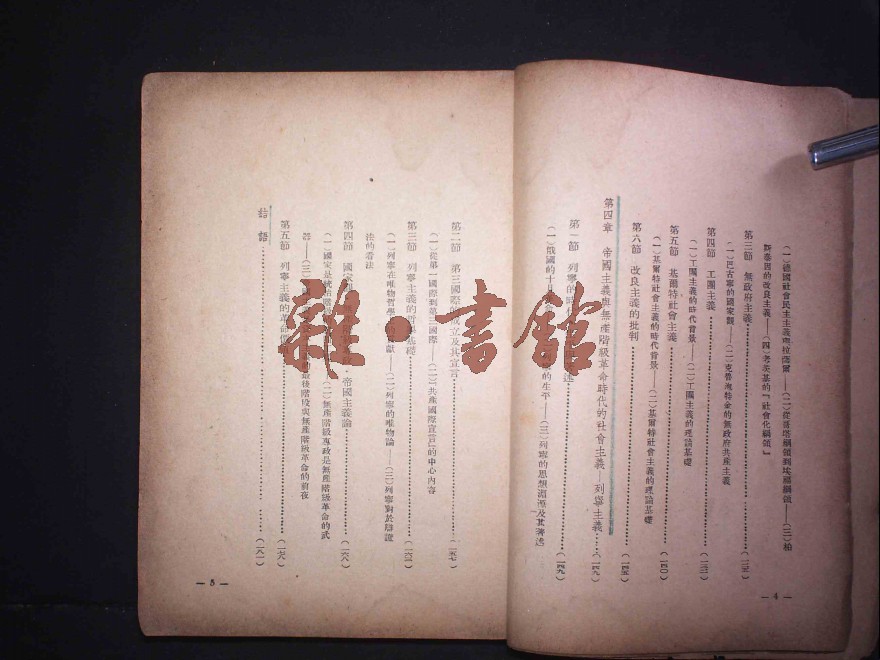 (一)德國社會民主主義與拉薩爾——(二)從哥塔綱領到埃福綱領——(三)柏
斯泰因的改良主義——(四)考茨基的『社會化綱領』
第三節 無政府主義……(一三一)
(一)巴古寧的國家觀——(二)克魯泡特金的無政府共產主義
第四節 工團主義……(一三三)
(一)工團主義的時代背景——(二)工團主義的理論基礎
第五節 基爾特社會主義……(一四〇)
(一)基爾特社會主義的時代背景——(二)基爾特社會主義的理論基礎
第六節 改良主義的批判……(一四五)
第四章 帝國主義與無產階級革命時代的社會主義——列寧主義……(一四九)
第一節 列寧的時代……述……(一四九)
(一)俄國的十……的生平——(三)列寧的思想淵源及其著述
— 4 —
第二節 第三國際的成立及其宣言……(一五七)
(一)從第一國際到第三國際——(二)『共產國際宣言』的中心內容
第三節 列寧主義的哲學基礎……(一六一)
(一)列寧在唯物哲學……獻——(二)列寧的唯物論——(三)列寧對於辯證
法的看法
第四節 國家……帝國主義論……(一六八)
(一)國家是統治階……(二)無產階級專政是無產階級革命的武
器——(三)……最後階段與無產階級革命的前夜
第五節 列寧主義的革命……(一七六)
結語……(一八一)
— 5 —
雜·書館